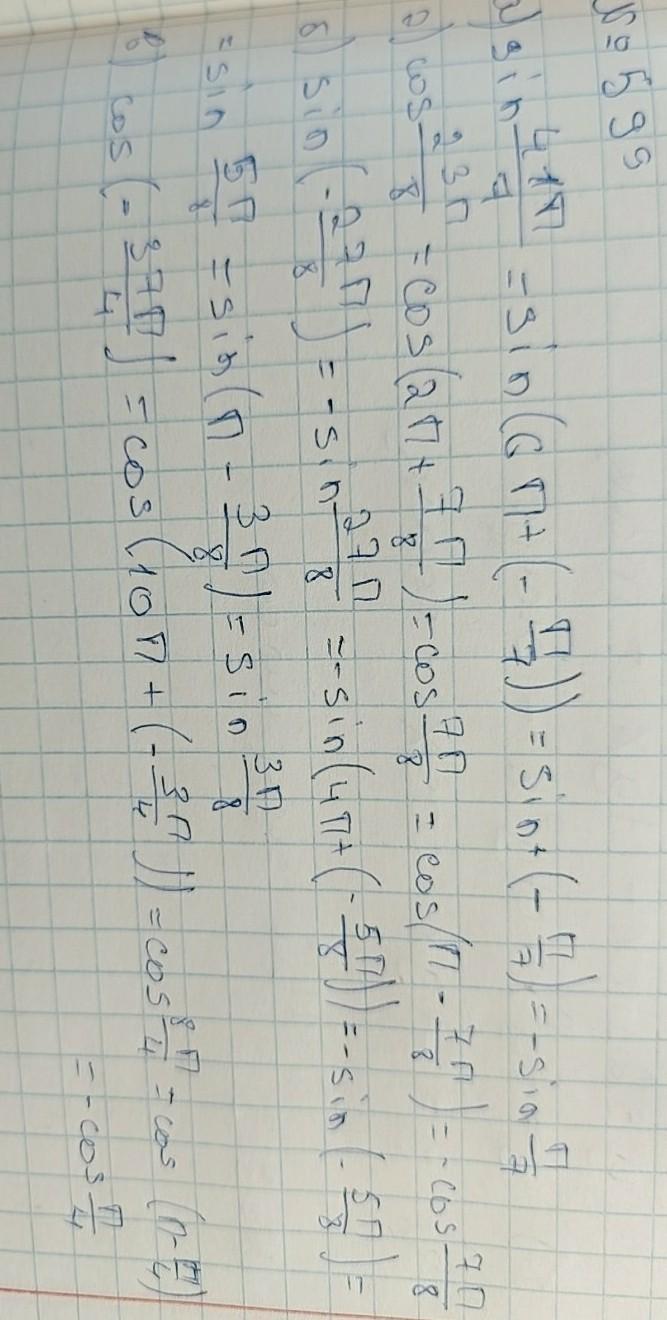 № 599
а) sin 41π/7 = sin(6π+(-π/7)) = sin+(-π/7) = -sin π/7
г) cos 23π/8 = cos(2π+7π/8) = cos 7π/8 = cos(π-7π/8) = -cos 7π/8
б) sin(-27π/8) = -sin 27π/8 = -sin(4π+(-5π/8)) = -sin(-5π/8) =
= sin 5π/8 = sin(π-3π/8) = sin 3π/8
в) cos(-37π/4) = cos(10π+(-3π/4)) = cos 8π/4 = cos(π-π/4)
= -cos π/4